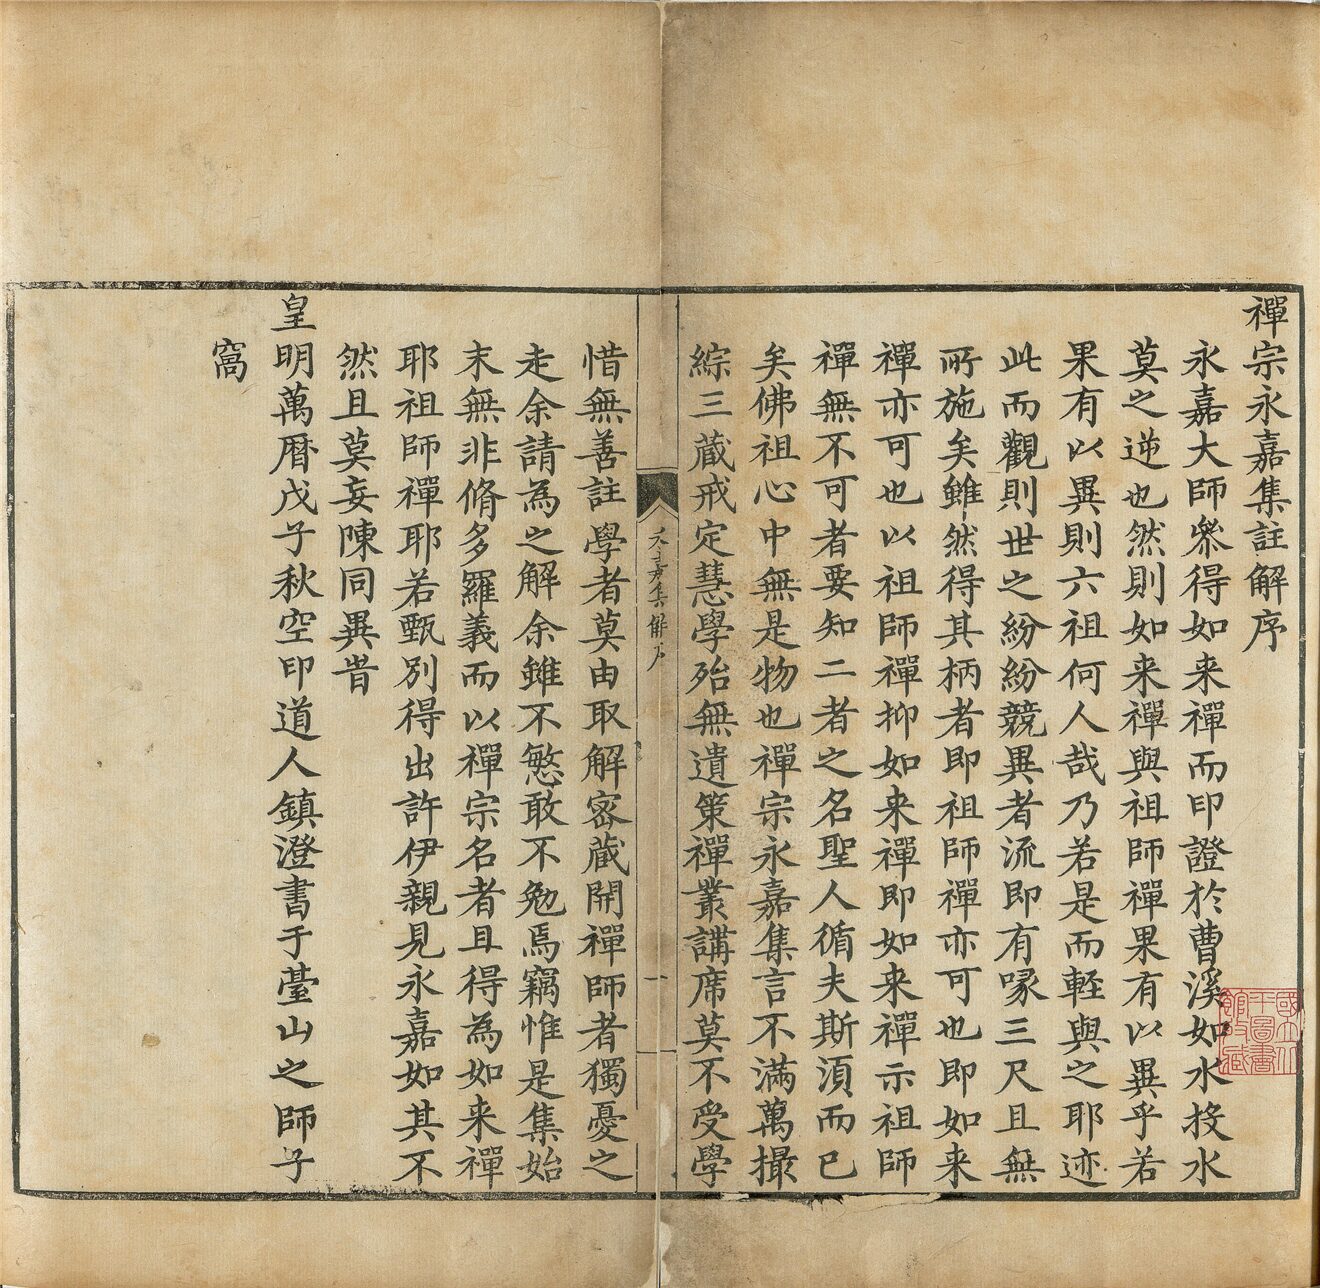 禪宗永嘉集註解序
永嘉大師叅得如来禪而印證於曹溪如水投水
莫之逆也然則如来禪與祖師禪果有以異乎若
果有以異則六祖何人哉乃若是而輕與之耶迹
此而觀則世之紛紛競異者流即有喙三尺且無
所施矣雖然得其柄者即祖師禪亦可也即如来
禪亦可也以祖師禪抑如来禪即如来禪示祖師
禪無不可者要知二者之名聖人循夫斯須而已
矣佛祖心中無是物也禪宗永嘉集言不滿萬撮
綜三蔵戒定慧學殆無遺策禪叢講席莫不受學
永嘉集解序
一
惜無善註學者莫由取解密蔵開禪師者獨憂之
走余請為之解余雖不慜敢不勉焉竊惟是集始
末無非脩多羅義而以禪宗名者且得為如来禪
耶祖師禪耶若甄別得出許伊親見永嘉如其不
然且莫妄陳同異旹
皇明萬暦戊子秋空印道人鎮澄書于臺山之師子
窩
國立北
平圖書
館收藏